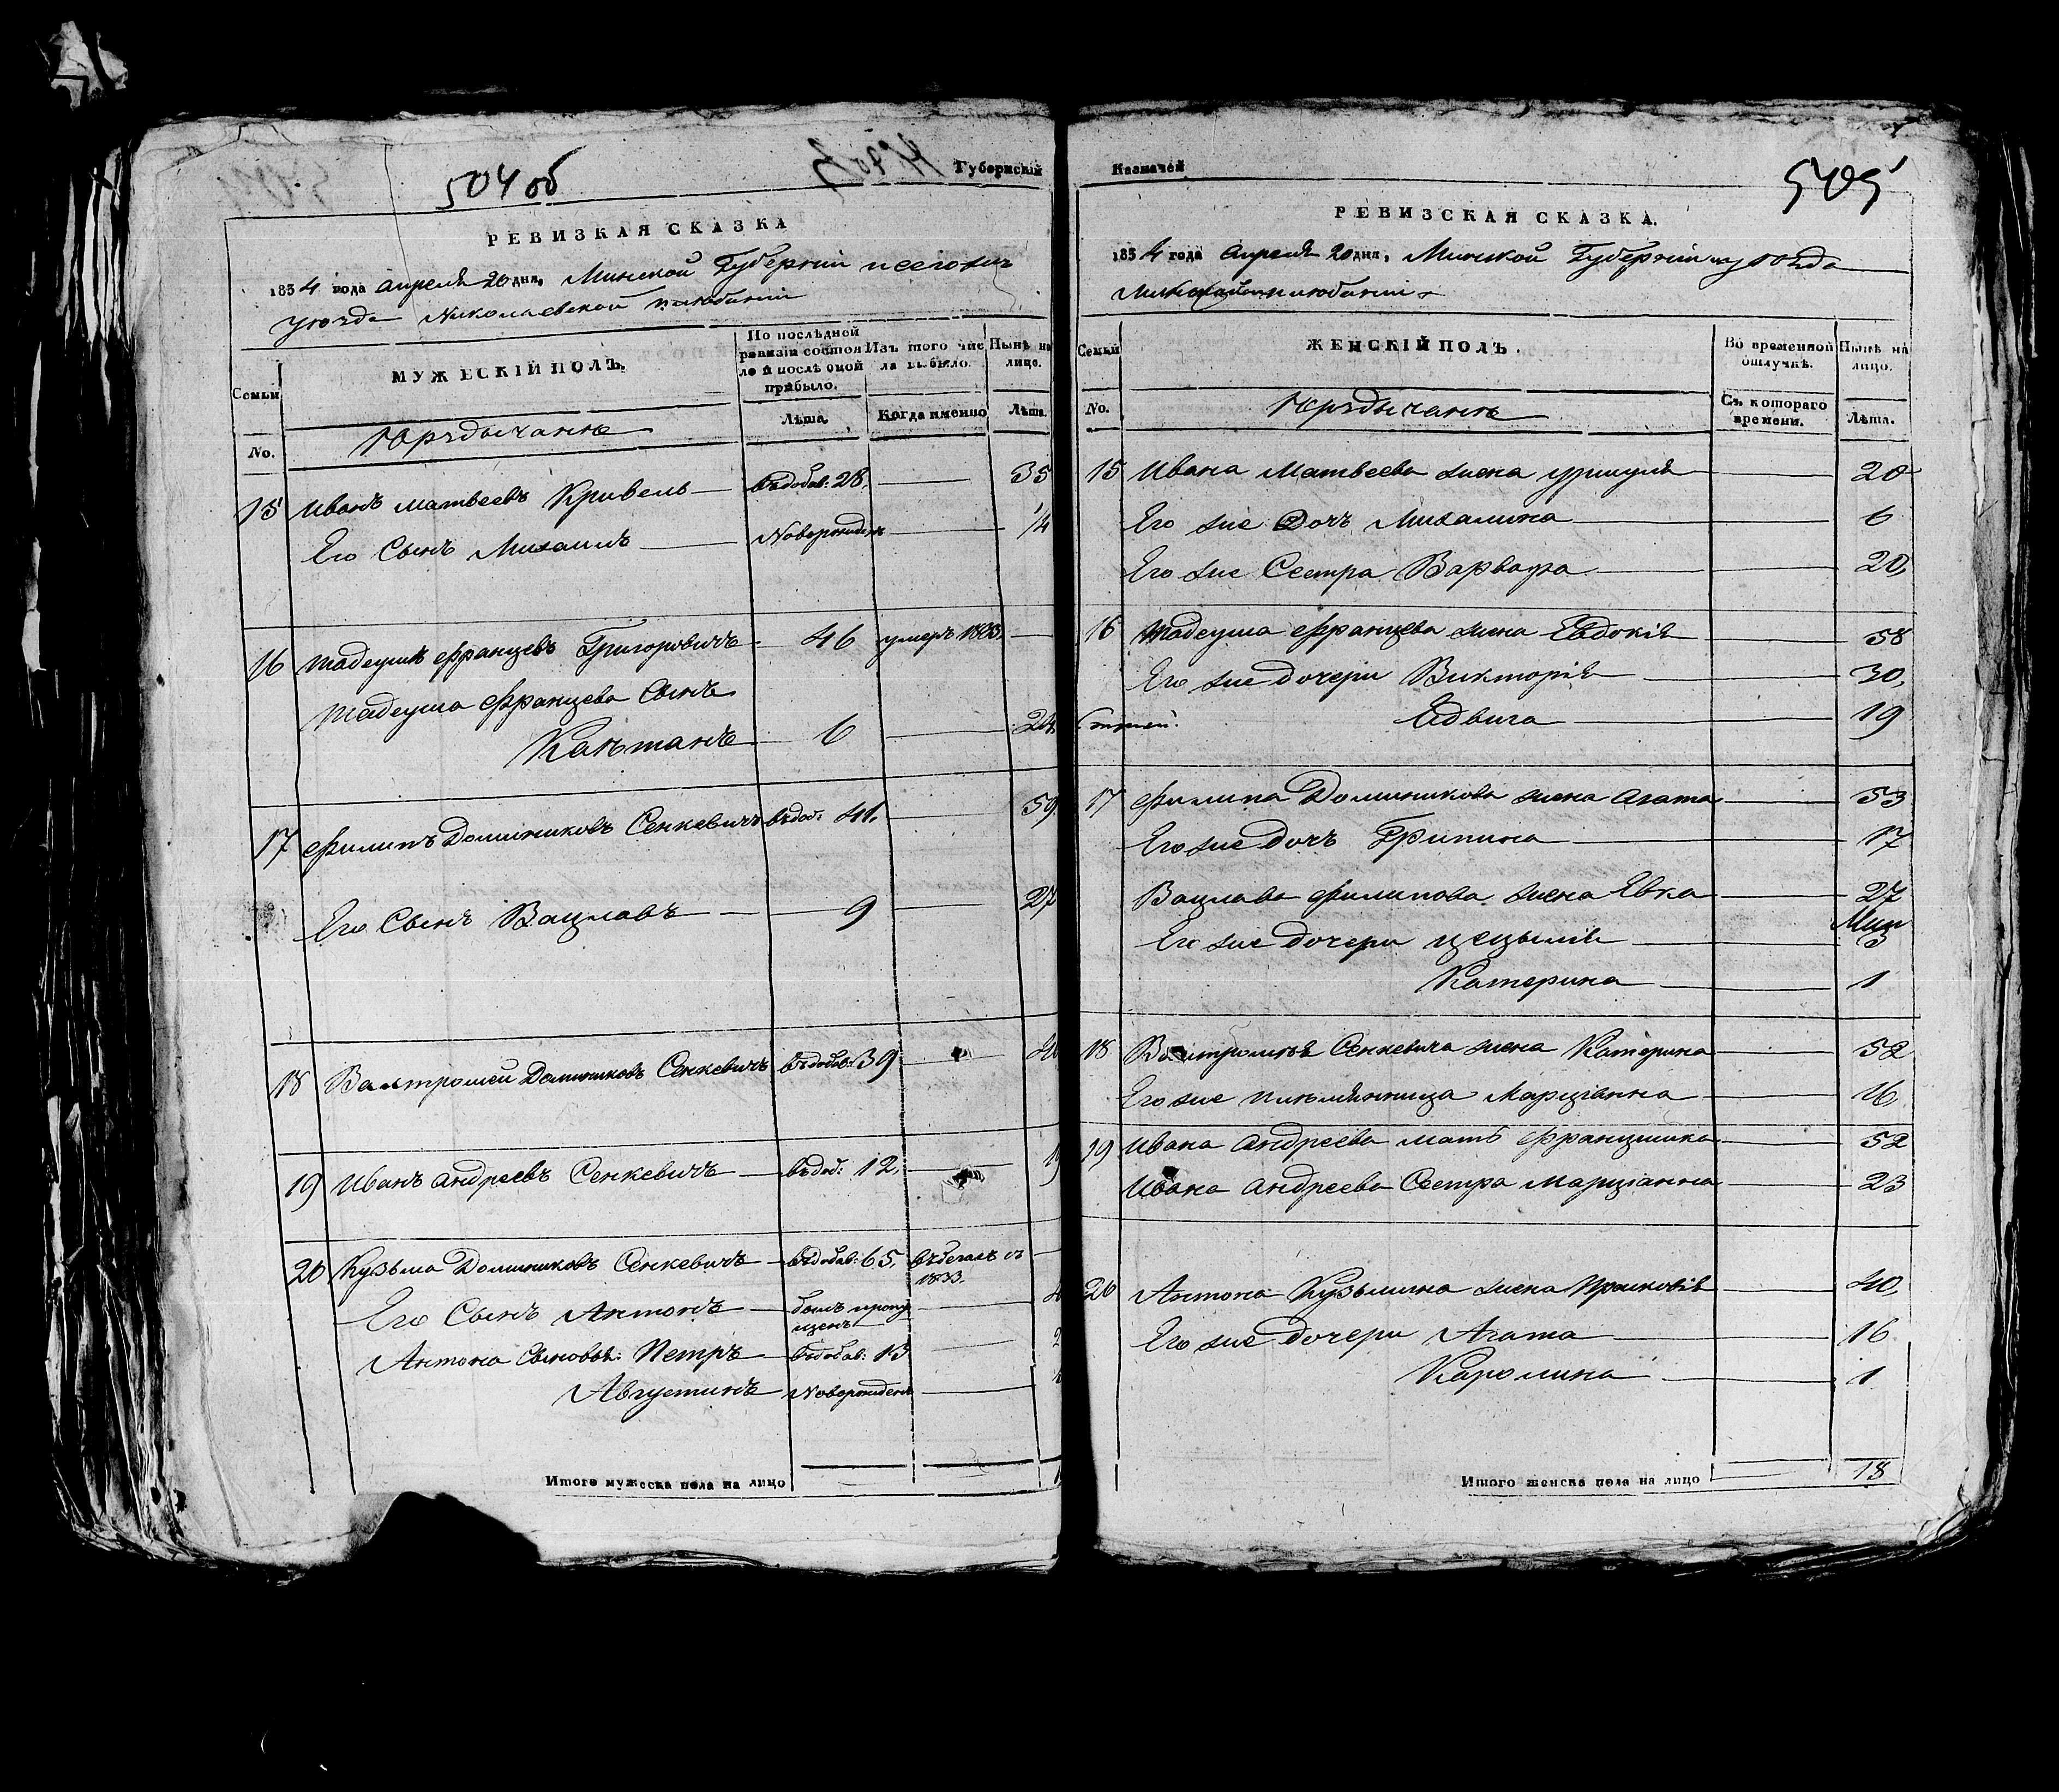 504 об
Губернскій
РЕВИЗКАЯ СКАЗКА
1834 года апреля 20 дня, Минской Губерніи и сего жъ
уезда Николаевской
Семьи
МУЖЕСКІЙ ПОЛЪ.
По послѣдней
ревизіи состоя
ло и послѣ оной
прибыло.
Изъ того чис
ла выбыло.
Нынѣ на
лицо.
No.
Юрздычанъ
Лѣта.
Когда именно
Лѣта.
15 Иванъ Матвеевъ Кривель въ добав: 28. 35
Его Сынъ Михаилъ Новорожден 14
16 Тадеушъ Францевъ Григоровичъ 46 умеръ 1833.
Тадеуша Францева Сынъ
Каетанъ 6 24
17 Филипъ Доминиковъ Сенкевичъ въ доб: 41. 59
Его Сынъ Вацлавъ 9 27
18 Валтромей Доминиковъ Сенкевичъ въ добав: 39
19 Иванъ Андреевъ Сенкевичъ въ доб: 12.
20 Кузьма Доминиковъ Сенкевичъ въ добав: 65.
1833.
Его Сынъ Антонъ былъ пропу
щенъ
Антона Сыновья: Петръ въ добав: 13
Августинъ Новорожден
Итого мужеска пола на лицо
Казначей
505
РЕВИЗСКАЯ СКАЗКА.
1834 года апреля 20 дня, Минской Губерніи и уезда
Семьи
ЖЕНСКІЙ ПОЛЪ.
Во временной
отлучкѣ.
Нынѣ на
лицо.
No.
Юрздычанъ
Съ котораго
времени.
Лѣта.
15 Ивана Матвеева жена Уршуля 28
Его же Дочъ Михалина 6
Его же Сестра Варвара 20,
16 Тадеуша Францева жена Евдокія 58
Его же дочери Викторія 30,
Едвига 19
17 Филипа Доминикова жена Агата 53
Его же Дочъ Грипина 17
Вацлава Филипова жена Евка 27
Его же дочери Цецылія 3
Катерина 1
18 Валтромея Сенкевича жена Катерина 52
Его же племянница Марціанна 16
19 Ивана Андреева мать Францишка 52
Ивана Андреева Сестра Марціанна 23
20 Антона Кузьмина жена Прасковія 40,
Его же дочери Агата 16
Каролина 1
Итого женска пола на лицо 18